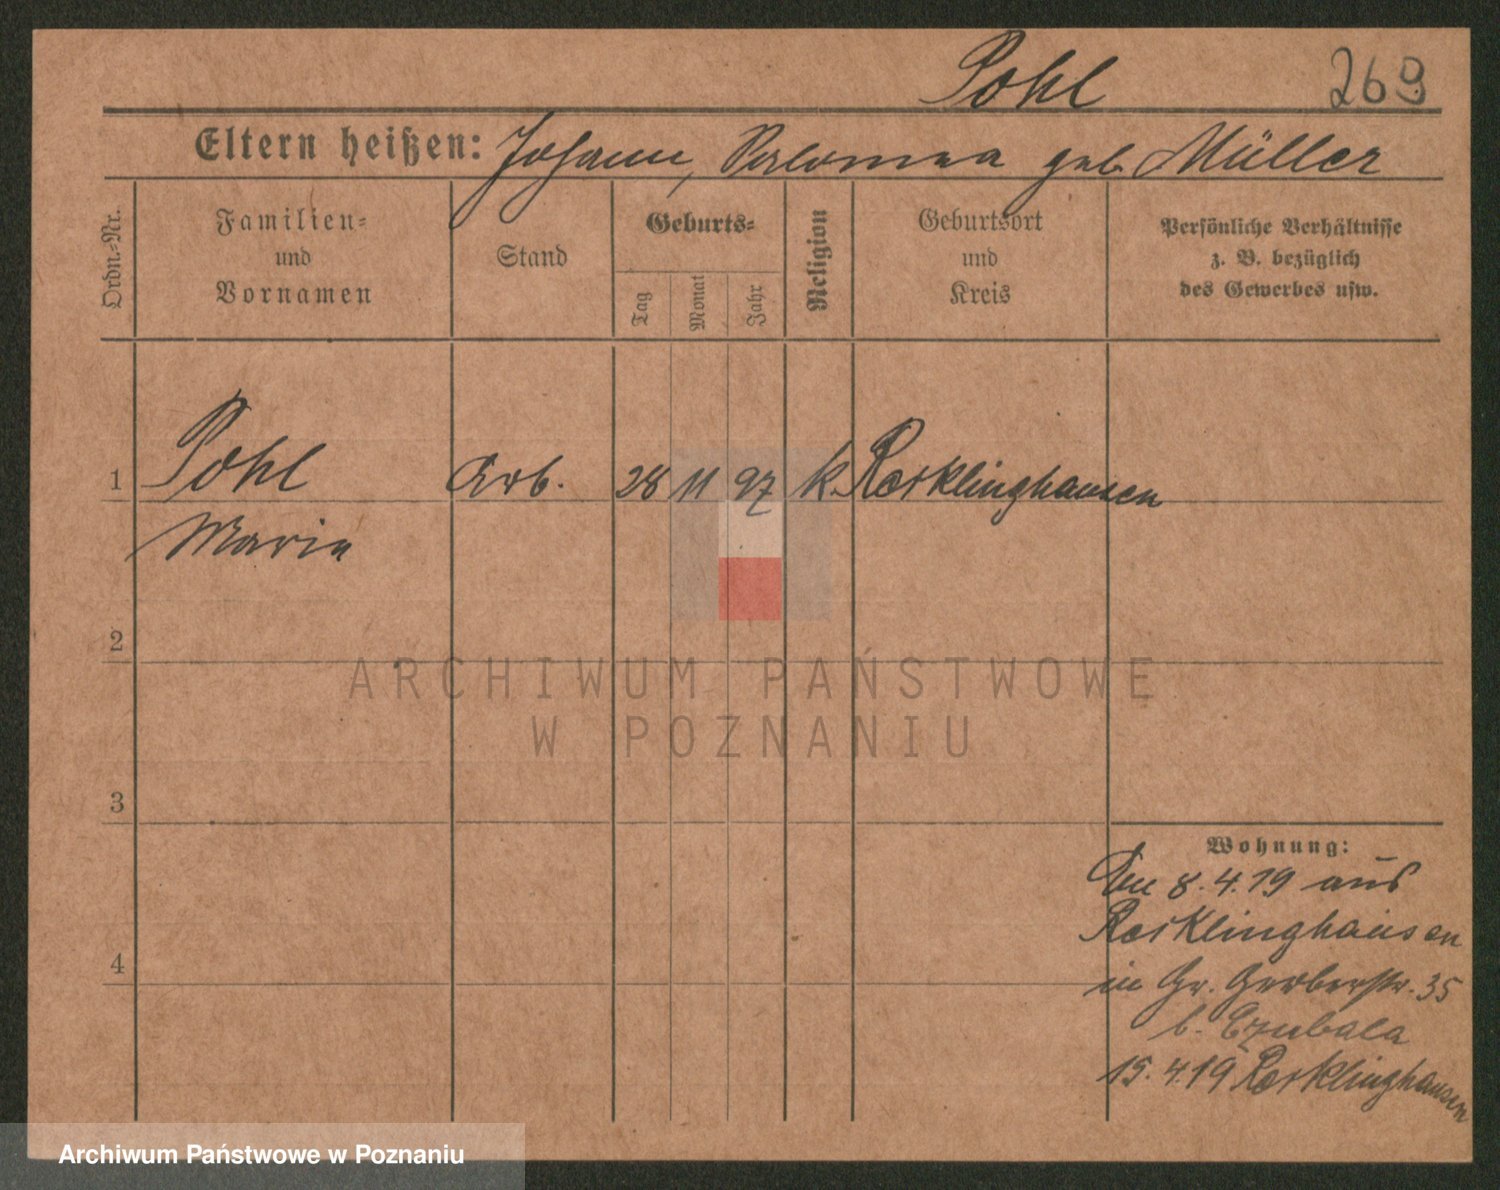 Pohl 269
Eltern heißen: Johann, Salomea geb. Müller
Ordn.-Nr.
Familien-
und
Vornamen
Stand
Geburts-
Tag
Monat
Jahr
Religion
Geburtsort
und
Kreis
Persönliche Verhältnisse
z. B. bezüglich
des Gewerbes usw.
1 Pohl Arb. 28 11 97 k. Recklinghausen
Marie
2
ARCHIWUM PAŃSTWOWE
W POZNANIU
3
Wohnung:
Den 8.4.19 aus
Recklinghausen
4
in Gr. Gerberstr. 35
b. Czubala
15.4.19 Recklinghausen
Archiwum Państwowe w Poznaniu